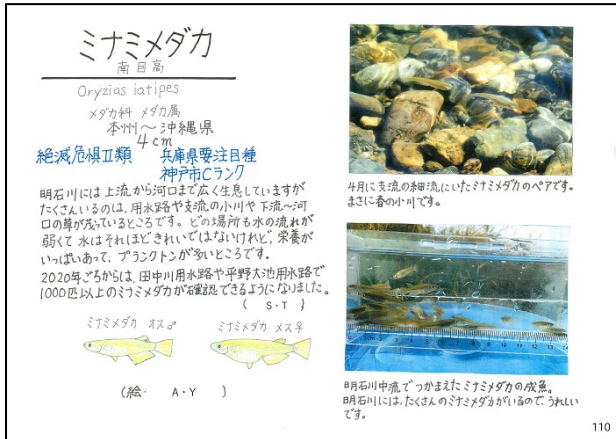 ミナミメダカ
南目高
Oryzias iatipes
メダカ科 メダカ属
本州〜沖縄県
4cm
絶滅危惧Ⅱ類 兵庫県要注目種
神戸市Cランク
明石川には上流から河口まで広く生息していますが
たくさんいるのは、用水路や支流の小川や下流〜河
口の草が茂っているところです。どの場所も水の流れが
弱くて水はそれほどきれいではないけれど、栄養が
いっぱいあって、プランクトンが多いところです。
2020年ごろからは、田中川用水路や平野大池用水路で
1000匹以上のミナミメダカが確認できるようになりました。
( S・T )
ミナミメダカ オス♂
ミナミメダカ メス♀
(絵・ A・Y )
4月に支流の細流にいたミナミメダカのペアです。
まさに春の小川です。
明石川中流でつかまえたミナミメダカの成魚。
明石川には、たくさんのミナミメダカがいるので、うれしい
です。
110